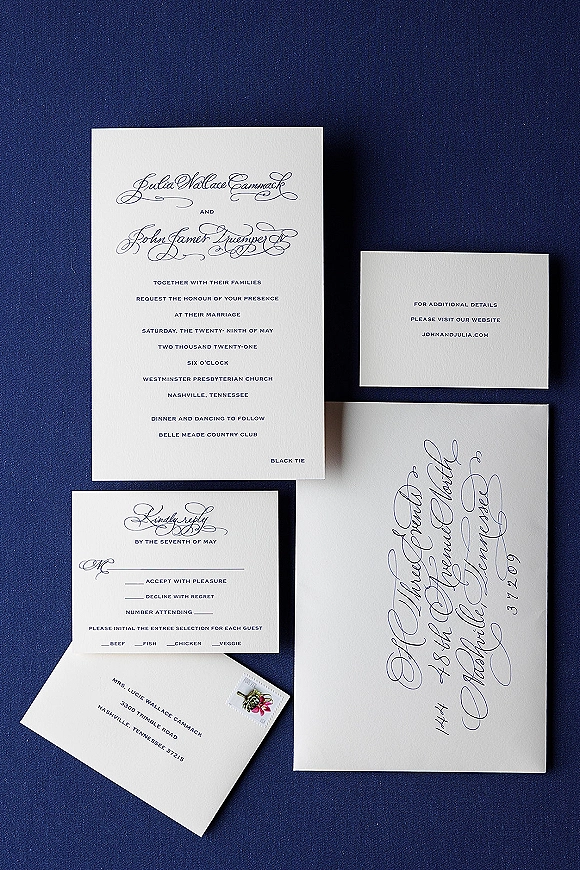 Julia Wallace Cammack
AND
John James Tuemper IV
TOGETHER WITH THEIR FAMILIES
REQUEST THE HONOUR OF YOUR PRESENCE
AT THEIR MARRIAGE
SATURDAY, THE TWENTY- NINTH OF MAY
TWO THOUSAND TWENTY-ONE
SIX O'CLOCK
WESTMINSTER PRESBYTERIAN CHURCH
NASHVILLE, TENNESSEE
DINNER AND DANCING TO FOLLOW
BELLE MEADE COUNTRY CLUB
BLACK TIE
FOR ADDITIONAL DETAILS
PLEASE VISIT OUR WEBSITE
JOHNANDJULIA.COM
Kindly reply
BY THE SEVENTH OF MAY
M
ACCEPT WITH PLEASURE
DECLINE WITH REGRET
NUMBER ATTENDING
PLEASE INITIAL THE ENTREE SELECTION FOR EACH GUEST
BEEF FISH CHICKEN VEGGIE
MRS. LUCIE WALLACE CAMMACK
3300 TRIMBLE ROAD
NASHVILLE, TENNESSEE 37215
Three Events
144 48th Avenue North
Nashville Tennessee
37209